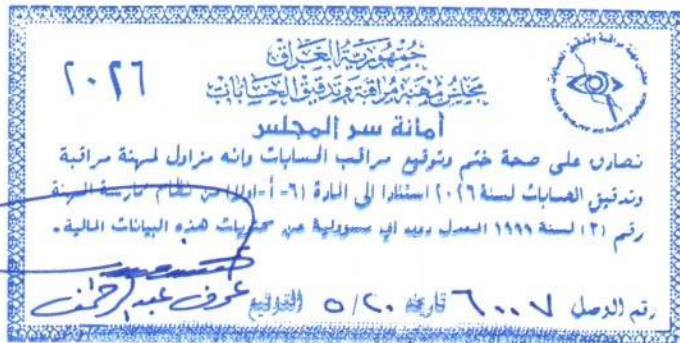 جمهورية العراق
مجلس مهنة مراقبة وتدقيق الحسابات
٢٠٢٦
أمانة سر المجلس
نصادق على صحة ختم وتوقيع مراقب الحسابات وانه مزاول لمهنة مراقبة
وتدقيق الحسابات لسنة ٢٠٢٦ استنادا الى المادة (٦- أ-اولا) من نظام ممارسة المهنة
رقم (٣) لسنة ١٩٩٩ المعدل دون اي مسؤولية عن محتويات هذه البيانات المالية.
رقم الوصل ٦٠٠٧ تاريخه ٥/٢٠ التوقيع